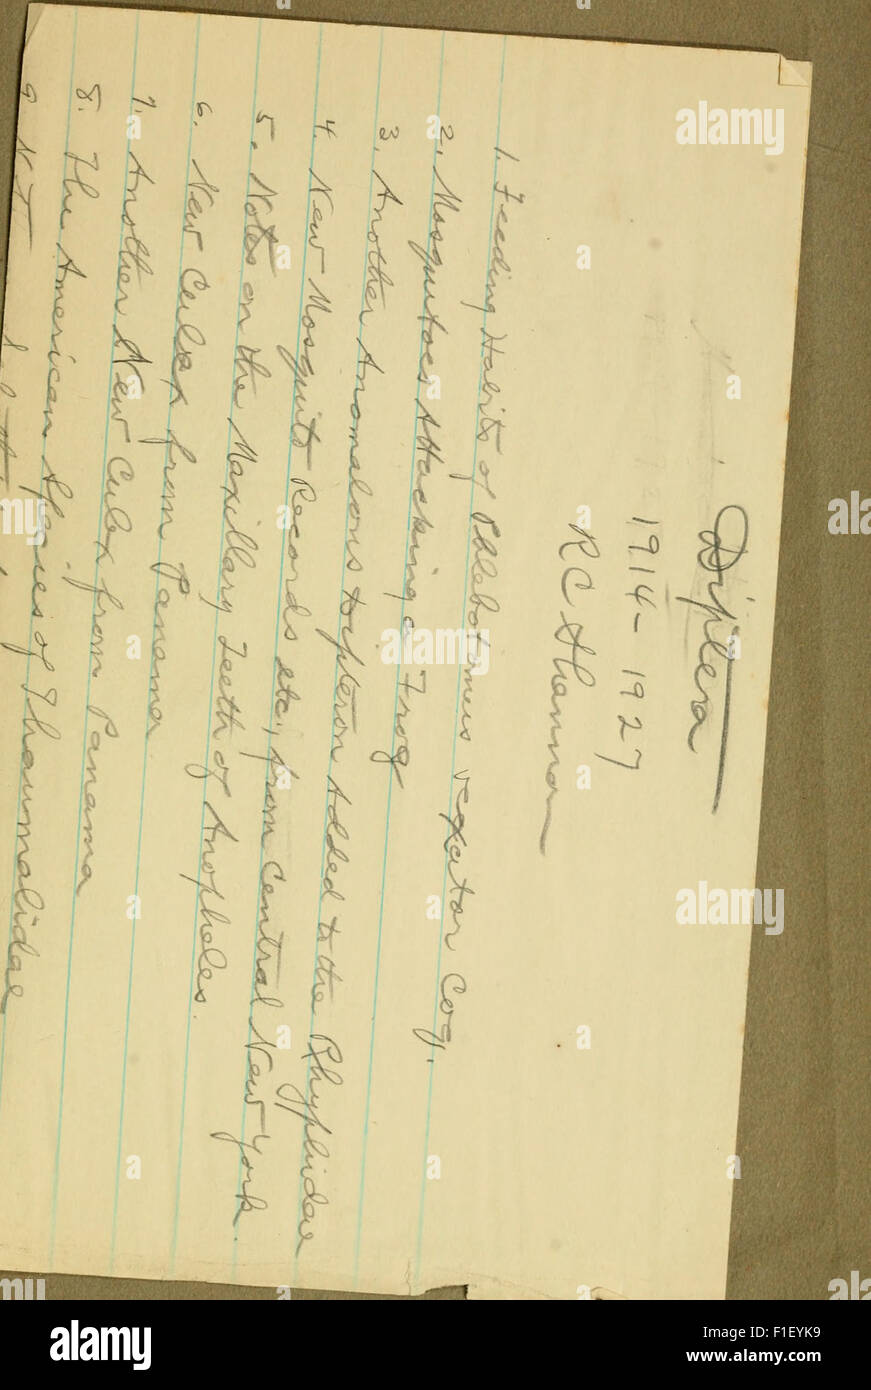 Diptera
1914-1927
RC Shannon
1. Feeding Habits of Phlebotomus vexator Coq.
2. Mosquitoes Attacking a Frog
3. Another Anomalous dipteron Added to the Rhyphidae
4. New Mosquito Records etc, from Central New York.
5. Notes on the Maxillary Teeth of Anopheles.
6. New Culex from Panama
7. Another New Culex from Panama
8. The American Species of Thaumalidae
9
alamy
Image ID: F1EYK9
www.alamy.com